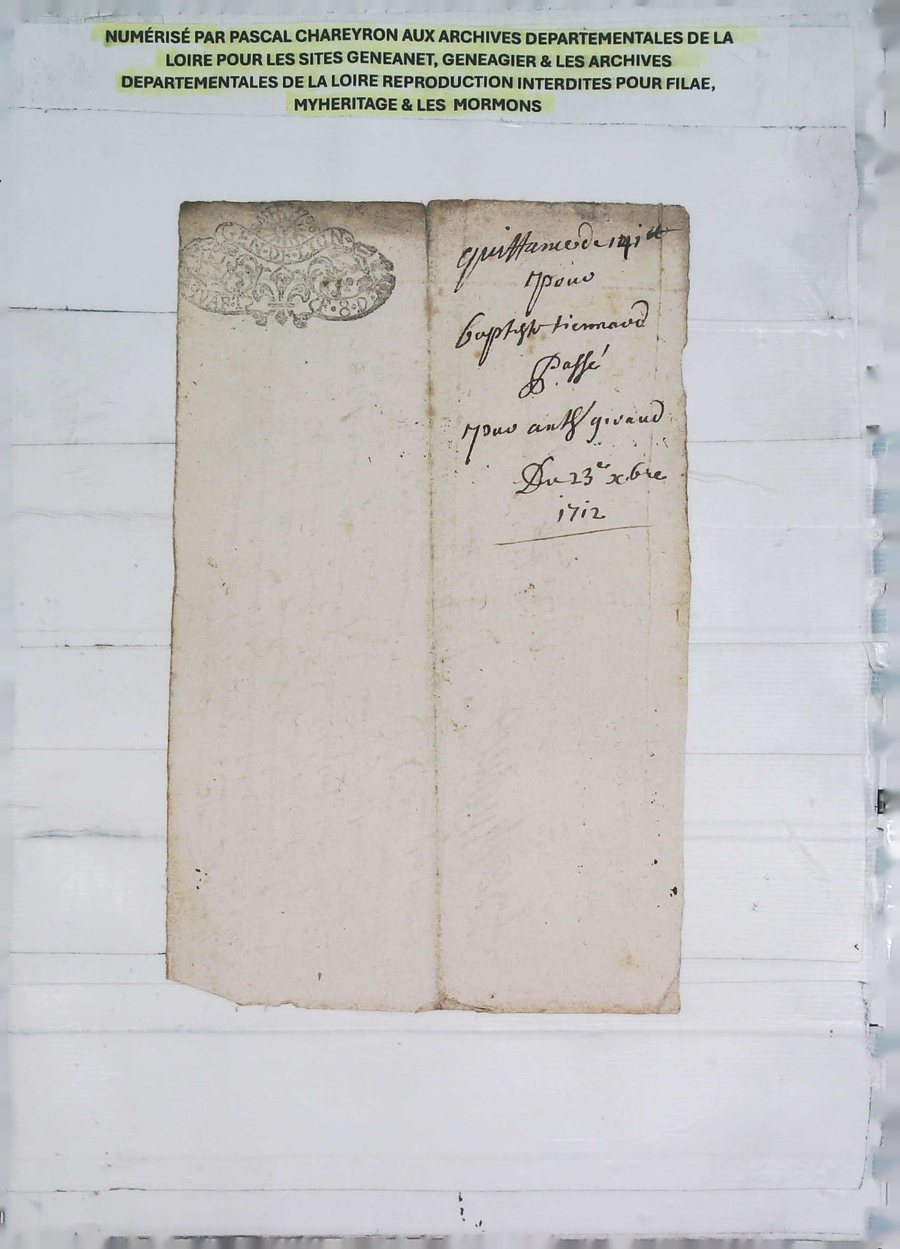 NUMÉRISÉ PAR PASCAL CHAREYRON AUX ARCHIVES DEPARTEMENTALES DE LA
LOIRE POUR LES SITES GENEANET, GENEAGIER & LES ARCHIVES
DEPARTEMENTALES DE LA LOIRE REPRODUCTION INTERDITES POUR FILAE,
MYHERITAGE & LES MORMONS
GEN·DE·LION·
8·D
quittance de 141ᵗᵗ
pour
baptiste
Passé
par anth giraud
Du 23e xbre
1712